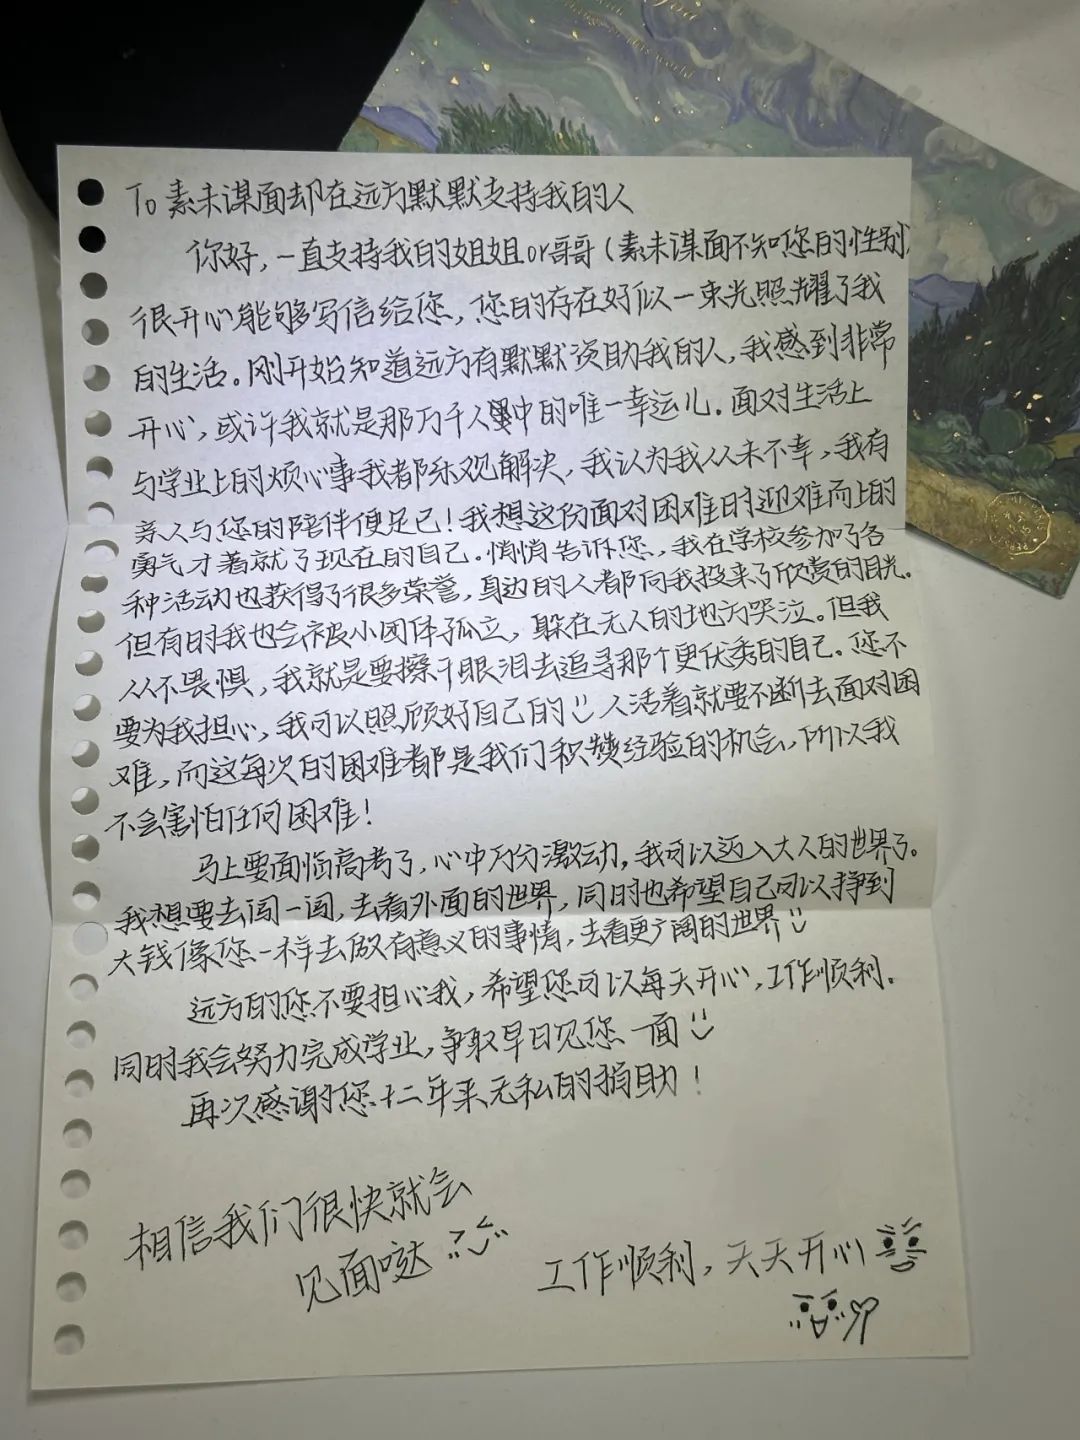 in this world
To 素未谋面却在远方默默支持我的人
你好，一直支持我的姐姐or哥哥（素未谋面不知您的性别）
很开心能够写信给您，您的存在好似一束光照耀了我
的生活。刚开始知道远方有默默资助我的人，我感到非常
开心，或许我就是那万千人中的唯一幸运儿。面对生活上
与学业上的烦心事我都乐观解决，我认为我从未不幸，我有
亲人与您的陪伴便足已！我想这份面对困难时迎难而上的
勇气才著就了现在的自己。悄悄告诉您，我在学校参加了各
种活动也获得了很多荣誉，身边的人都向我投来了欣赏的目光。
但有时我也会被小团体孤立，躲在无人的地方哭泣。但我
从不畏惧，我就是要擦干眼泪去追寻那个更优秀的自己。您不
要为我担心，我可以照顾好自己的 人活着就要不断去面对困
难，而这每次的困难都是我们积攒经验的机会，所以我
不会害怕任何困难！
马上要面临高考了，心中万分激动，我可以迈入大人的世界了。
我想要去闯一闯，去看外面的世界，同时也希望自己可以挣到
大钱像您一样去做有意义的事情，去看更广阔的世界
远方的您不要担心我，希望您可以每天开心，工作顺利。
同时我会努力完成学业，争取早日见您一面
再次感谢您十二年来无私的捐助！
相信我们很快就会
见面哒
工作顺利，天天开心